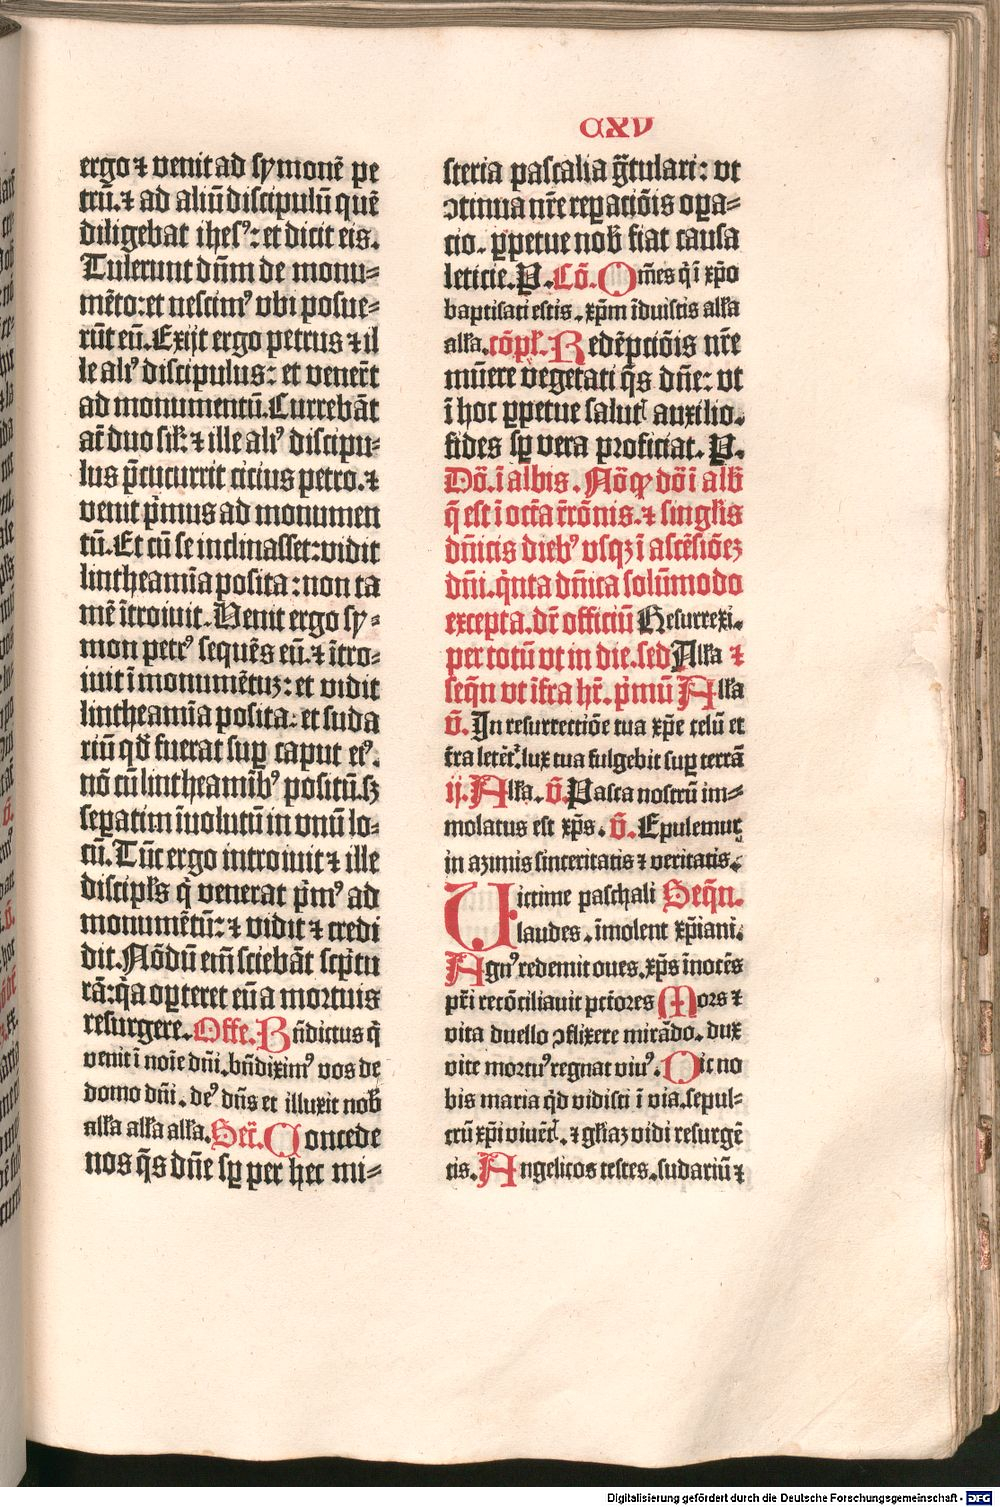 cxv
ergo ⁊ venit ad symonē pe
trū.⁊ ad aliū discipulū quē
diligebat ihesꝰ: et dicit eis.
Tulerunt dn̄m de monu⸗
mēto: et nescimꝰ vbi posue⸗
rūt eū. Exijt ergo petrus ⁊ il
le aliꝰ discipulus: et vener̄t
ad monumentū. Currebāt
aūt duo sil̄: ⁊ ille aliꝰ discipu⸗
lus p̄cucurrit citius petro. ⁊
venit p̄mus ad monumen
tū. Et cū se inclinasset: vidit
lintheamīa posita: non ta
mē ītroiuit. Venit ergo sy⸗
mon petrꝰ sequēs eū. ⁊ ītro⸗
iuit ī monumētuꝫ: et vidit
lintheamīa posita: et suda
riū qd̄ fuerat suꝑ caput eiꝰ.
nō cū lintheamībꝰ positū. sꝫ
seꝑatim inuolutū in vnū lo⸗
cū. Tūc ergo introiuit ⁊ ille
discipl̄s q̇ venerat p̄mꝰ ad
monumētū: ⁊ vidit ⁊ credi
dit. Nōdū em̄ sciebāt sc̄ptu
rā: q̇a oꝑteret eū a mortuis
resurgere. Offe. Bn̄dictus q̇
venit ī noīe dn̄i. bn̄diximꝰ vos de
domo dn̄i. deꝰ dn̄s et illuxit nob̄
all̄a all̄a all̄a. Secr̄. Concede
nos q̄s dn̄e sꝑ per hec mi⸗
steria pascalia gr̄tulari: vt
ↄtinua nr̄e reꝑatiōis oꝑa⸗
tio. ꝑpetue nob̄ fiat causa
leticie. P. Cō. Om̄es q̇ ī xp̄o
baptisati estis. xp̄m īduistis all̄a
all̄a. cōpl̄. Redēptiōis nr̄e
mūere vegetati q̄s dn̄e: vt
ī hoc ꝑpetue salutꝭ auxilio.
fides sꝑ vera proficiat. P.
Dō. ī albis. Nōꝙ dōi ī alb̄
q̄ est ī octa r̄rōnis. ⁊ singl̄is
dn̄icis diebꝰ vsqꝫ ī ascēsiōeꝫ
dn̄i. q̇nta dn̄ica solūmodo
excepta. dr̄ officiū Resurrexi.
per totū vt in die. sed All̄a ⁊
seqn̄ vt īfra hr̄. p̄mū All̄a
v̄. In resurrectiōe tua xp̄e celū et
tr̄a letēt᷑. lux tua fulgebit suꝑ terrā
ij. All̄a. v̄. Pasca nostrū im⸗
molatus est xp̄s. v̄. Epulemur
in azimis sinceritatis ⁊ veritatis.
Uictime paschali Seqn̄.
laudes. īmolent xp̄iani.
Agnꝰ redemit oues. xp̄s īnocēs
pr̄i recōciliauit pctōres Mors ⁊
vita duello ↄflixere mirādo. dux
vite mortuꝰ regnat viuꝰ. Dic no
bis maria qd̄ vidisti ī via. sepul⸗
crū xp̄i viuētꝭ. ⁊ gl̄iaꝫ vidi resurgē
tis. Angelicos testes. sudariū ⁊
Digitalisierung gefördert durch die Deutsche Forschungsgemeinschaft - DFG